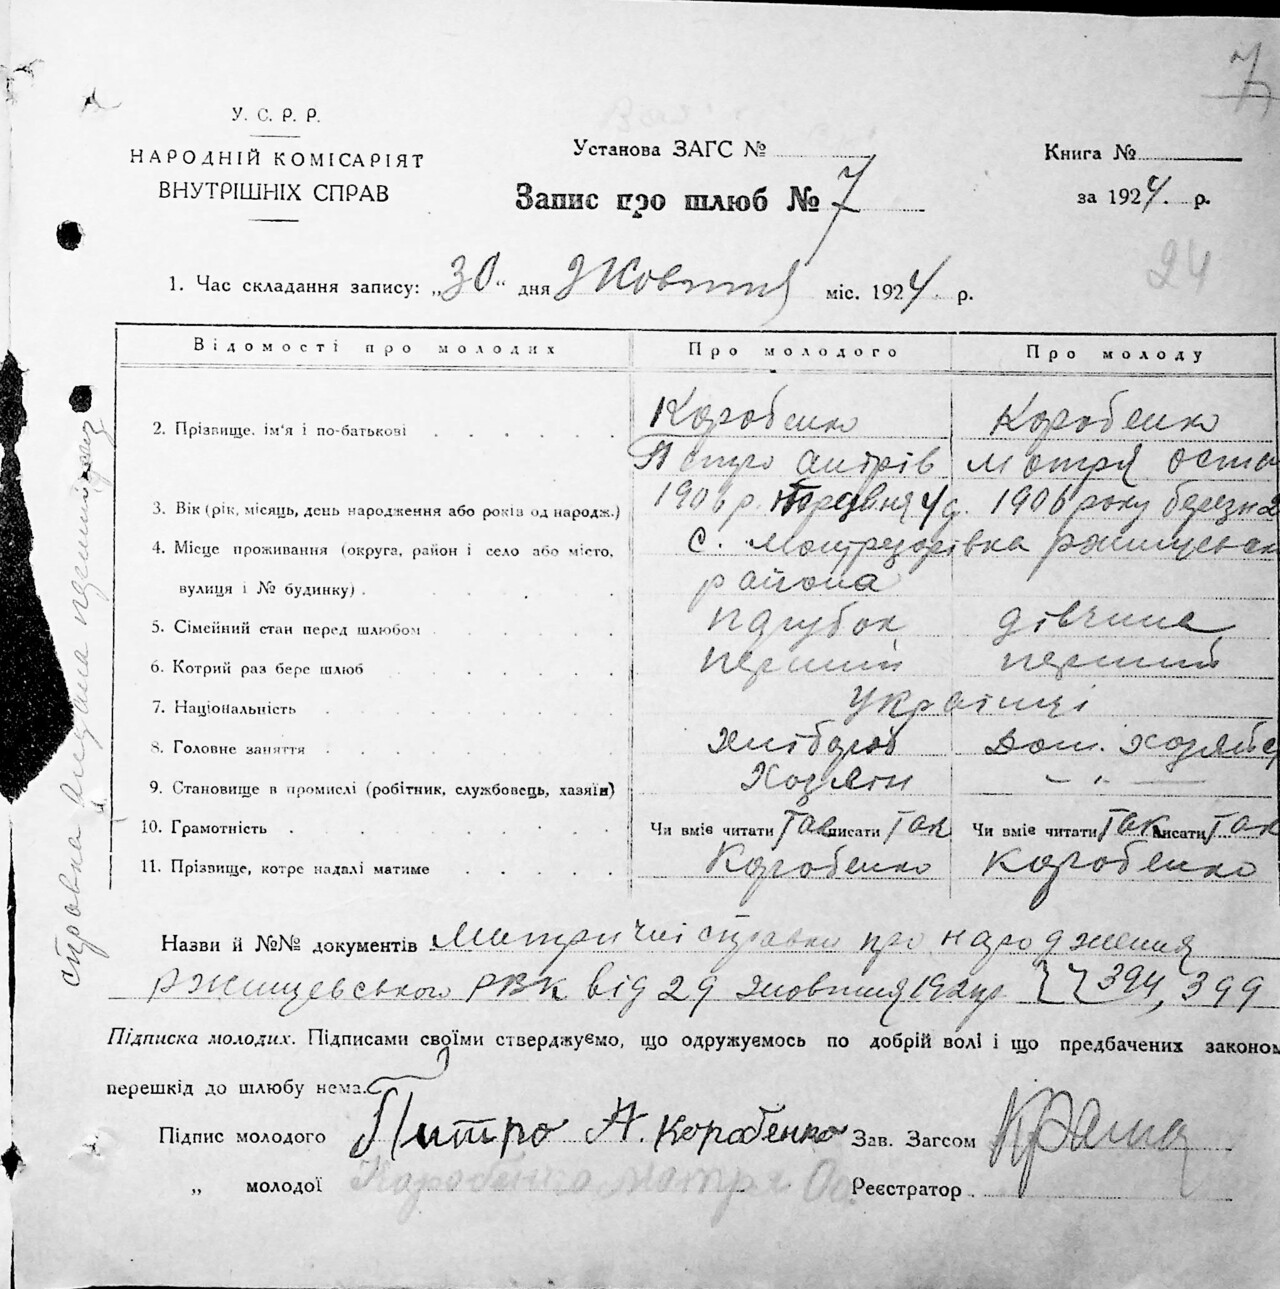 7
У. С. Р. Р.
НАРОДНІЙ КОМІСАРІЯТ
ВНУТРІШНІХ СПРАВ
Установа ЗАГС №
Запис про шлюб № 7
Книга №
за 1924. р.
24
1. Час складання запису: „30" дня Жовтня міс. 1924 р.
Відомості про молодих Про молодого Про молоду
2. Прізвище, ім'я і по-батькові Коробенко Коробенко
Петро Мотря
3. Вік (рік, місяць, день народження або років од народж.) 1906 р. 1906 року
4. Місце проживання (округа, район і село або місто, с.
вулиця і № будинку) района
5. Сімейний стан перед шлюбом парубок дівчина
6. Котрий раз бере шлюб перший перший
7. Національність Українці
8. Головне заняття Хлібороб Дом.
9. Становище в промислі (робітник, службовець, хазяїн) Хозяїн – „ –
10. Грамотність Чи вміє читати Так писати Так Чи вміє читати Так писати Так
11. Прізвище, котре надалі матиме Коробенко Коробенко
Назви й №№ документів Метричні справки про народження
Ржищевського РВК від 29 жовтня 1924 р 394, 399
Підписка молодих. Підписами своїми стверджуємо, що одружуємось по добрій волі і що предбачених законом
перешкід до шлюбу нема.
Підпис молодого Питро А. Коробенко Зав. Загсом
„ молодої Коробенко Мотря Ос. Реєстратор